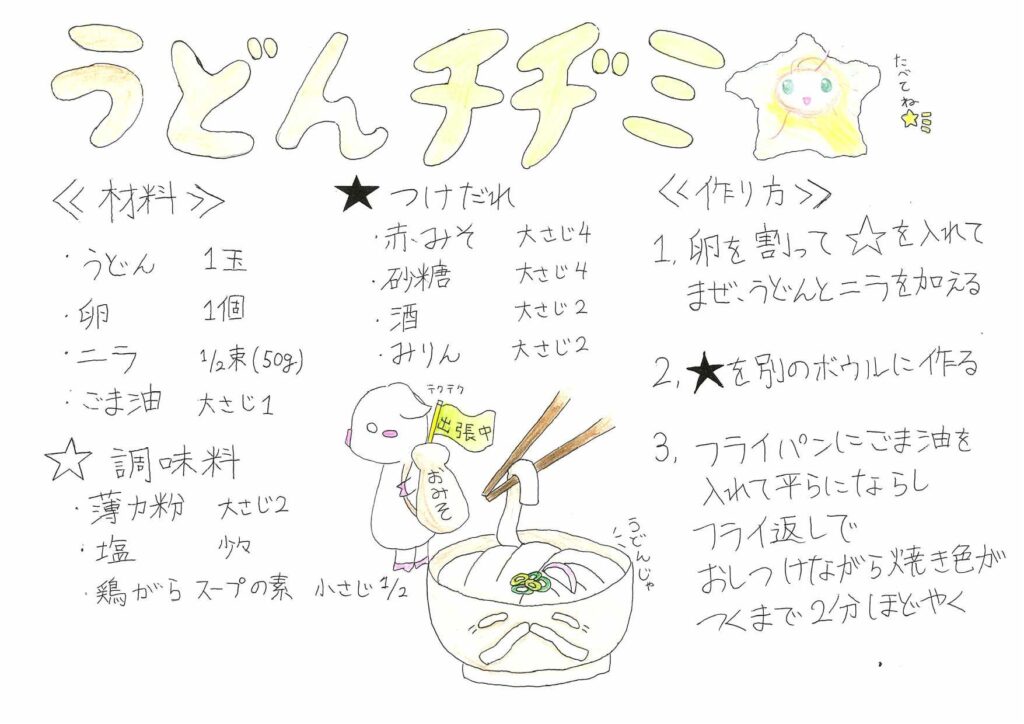 うどんチヂミ
たべてね★ミ
≪材料≫
・うどん 1玉
・卵 1個
・ニラ 1/2束(50g)
・ごま油 大さじ1
☆調味料
・薄力粉 大さじ2
・塩 少々
・鶏がらスープの素 小さじ1/2
★つけだれ
・赤みそ 大さじ4
・砂糖 大さじ4
・酒 大さじ2
・みりん 大さじ2
テクテク
出張中
おみそ
うどんじゃ
≪作り方≫
1, 卵を割って☆を入れて
まぜ、うどんとニラを加える
2, ★を別のボウルに作る
3, フライパンにごま油を
入れて平らにならし
フライ返しで
おしつけながら焼き色が
つくまで2分ほどやく